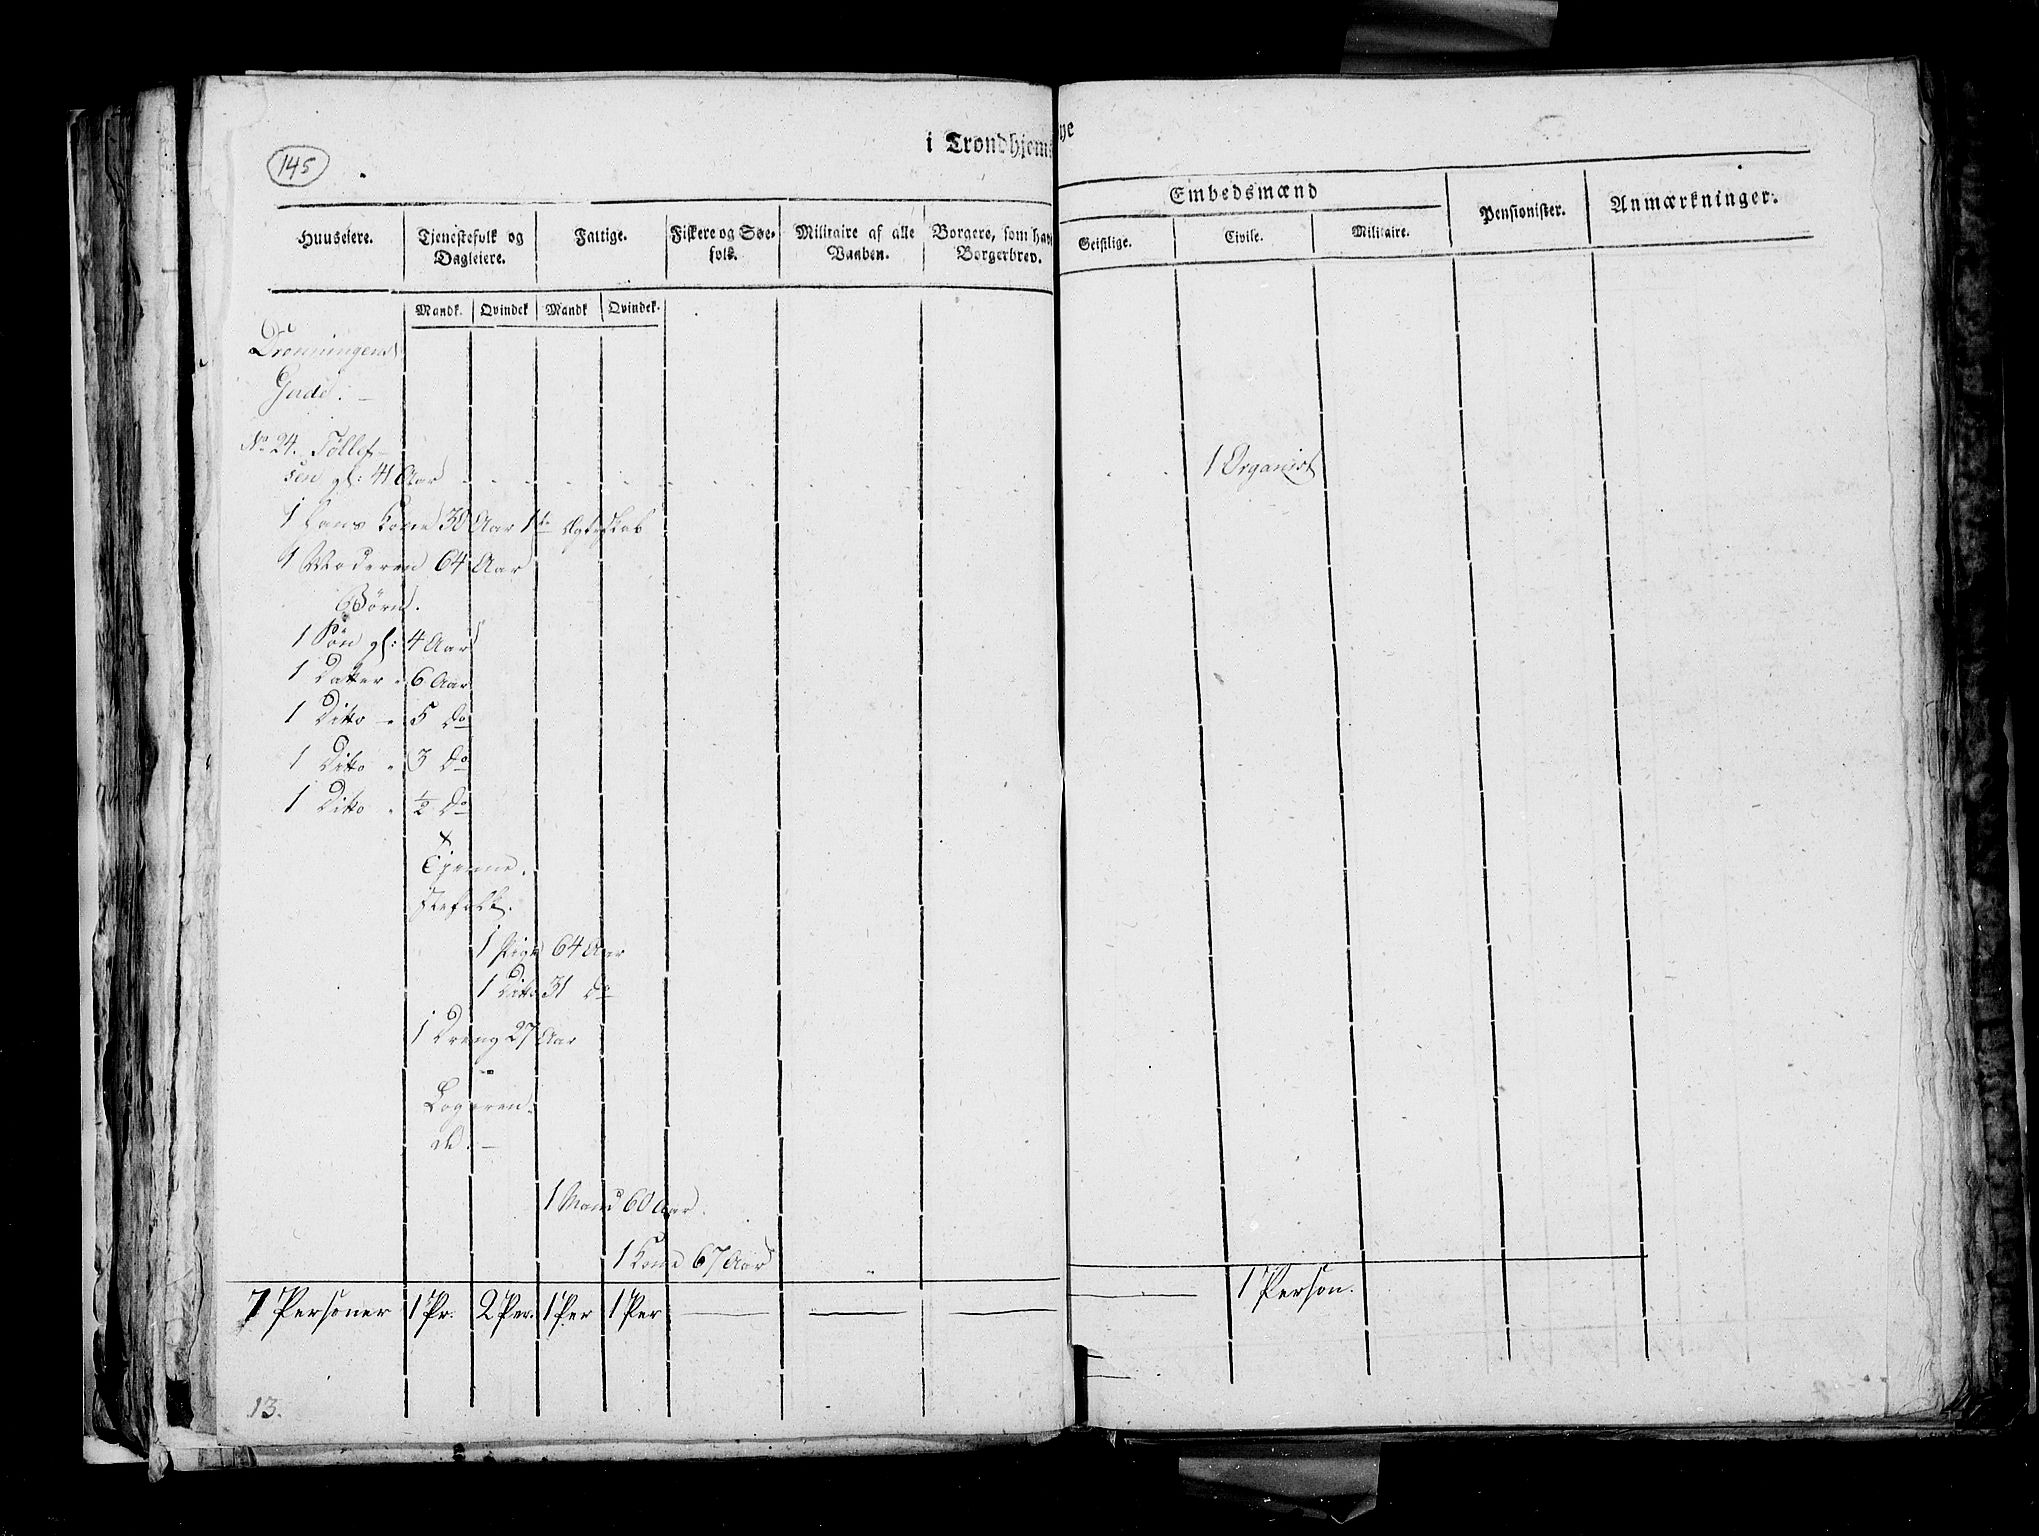 145
i Trondhjems Bye
Embedsmænd
Huuseiere. Tjenestefolk og Dagleiere. Fattige. Fiskere og Søefolk. Militaire af alle Vaaben. Borgere, som have Borgerbrev. Geistlige. Civile. Militaire. Pensionister. Anmærkninger.
Mandk. Qvindek Mandk Qvindek.
Dronningens
Gade. —
No 24. Tøllef-
sen gl: 41 Aar 1 Organist
1 Hans Kone 30 Aar 1te Ægteskab
1 Moderen 64 Aar
Børn.
1 Søn gl: 4 Aar
1 Datter " 6 Aar
1 Ditto " 5 Do
1 Ditto " 3 Do
1 Ditto " 1/2 Do
Tjenne-
stefolk.
1 Pige 64 Aar
1 Ditto 31 Do
1 Dreng 27 Aar
Logeren-
de. —
1 Mand 60 Aar.
1 Kone 67 Aar
7 Personer 1 Pr. 2 Per. 1 Per 1 Per 1 Person.
13.